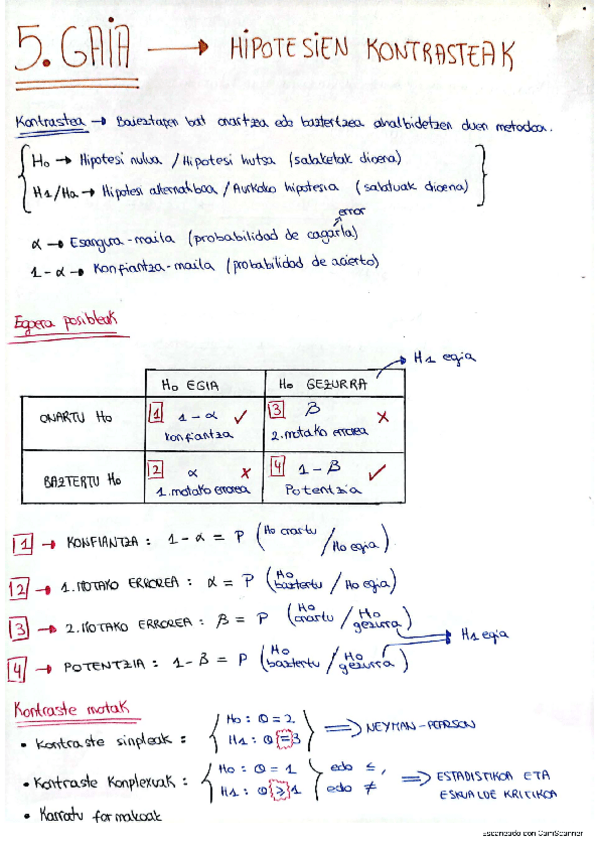 5. GAIA → HIPOTESIEN KONTRASTEAK
Kontrastea → Baieztapen bat onartzea edo baztertzea ahalbidetzen duen metodoa.
H0 → Hipotesi nulua / Hipotesi hutsa (salaketak dioena)
H1/Ha → Hipotesi alternatiboa / Aurkako hipotesia (salatuak dioena)
error
α → Esangura-maila (probabilidad de cagarla)
1-α → Konfiantza-maila (probabilidad de acierto)
Egoera posibleak
→ H1 egia
H0 EGIA H0 GEZURRA
ONARTU H0 1 1-α ✓ konfiantza 3 β x 2.motako errorea
BAZTERTU H0 2 α x 1.motako errorea 4 1-β ✓ Potentzia
1 → KONFIANTZA : 1-α = P (H0 onartu / H0 egia)
2 → 1.MOTAKO ERROREA : α = P (H0 baztertu / H0 egia)
3 → 2.MOTAKO ERROREA : β = P (H0 onartu / H0 gezurra)
→ H1 egia
4 → POTENTZIA : 1-β = P (H0 baztertu / H0 gezurra)
Kontraste motak
• Kontraste sinpleak : { H0 : θ = 2
H1 : θ = 3 } ⇒ NEYMAN-PEARSON
• Kontraste Konplexuak : { H0 : θ = 1
H1 : θ ≥ 1 } edo ≤, edo ≠ ⇒ ESTADISTIKOA ETA ESKUALDE KRITIKOA
• Karratu formakoak
Escaneado con CamScanner